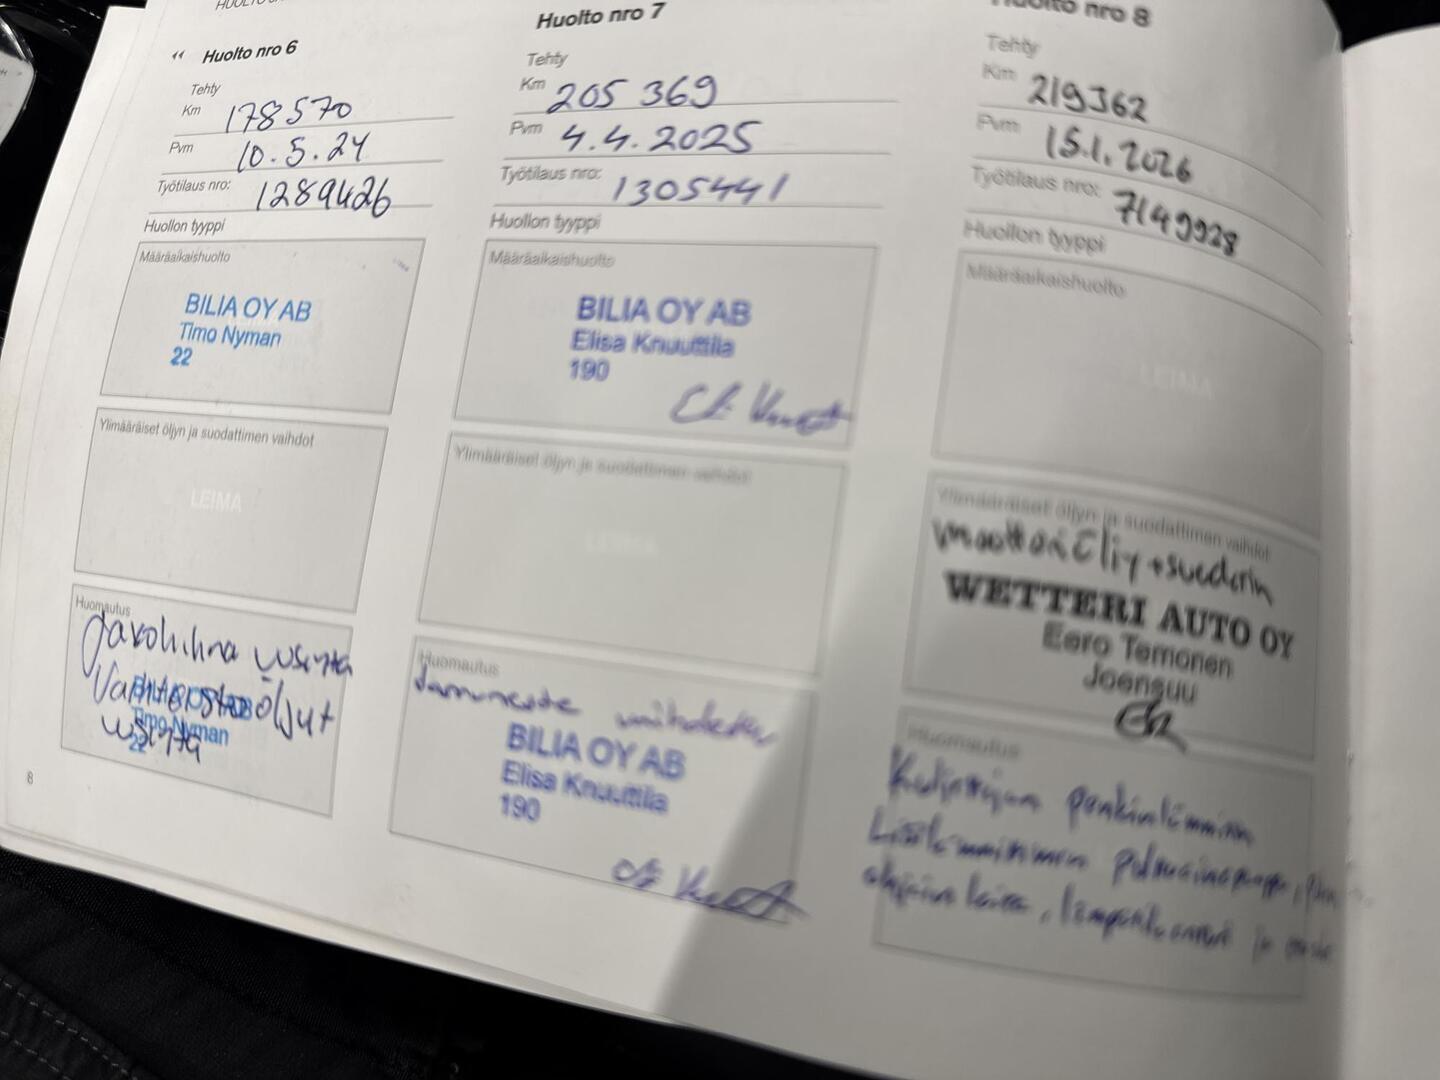 Huolto nro 6
Tehty
Km 178570
Pvm 10.5.24
Työtilaus nro: 1289426
Huollon tyyppi
Määräaikaishuolto
BILIA OY AB
Timo Nyman
22
Ylimääräiset öljyn ja suodattimen vaihdot
LEIMA
Huomautus
Jakohihna uusittu
Vaihteisto öljyt
uusittu
BILIA OY AB
Timo Nyman
22
8
Huolto nro 7
Tehty
Km 205 369
Pvm 4.4.2025
Työtilaus nro: 1305441
Huollon tyyppi
Määräaikaishuolto
BILIA OY AB
Elisa Knuuttila
190
Ylimääräiset öljyn ja suodattimen vaihdot
LEIMA
Huomautus
Jarruneste
BILIA OY AB
Elisa Knuuttila
190
Huolto nro 8
Tehty
Km 219362
Pvm 15.1.2026
Työtilaus nro: 7149928
Huollon tyyppi
Määräaikaishuolto
LEIMA
Ylimääräiset öljyn ja suodattimen vaihdot
WETTERI AUTO OY
Eero Temonen
Joensuu
Huomautus
Kuljettajan penkinlämmitin